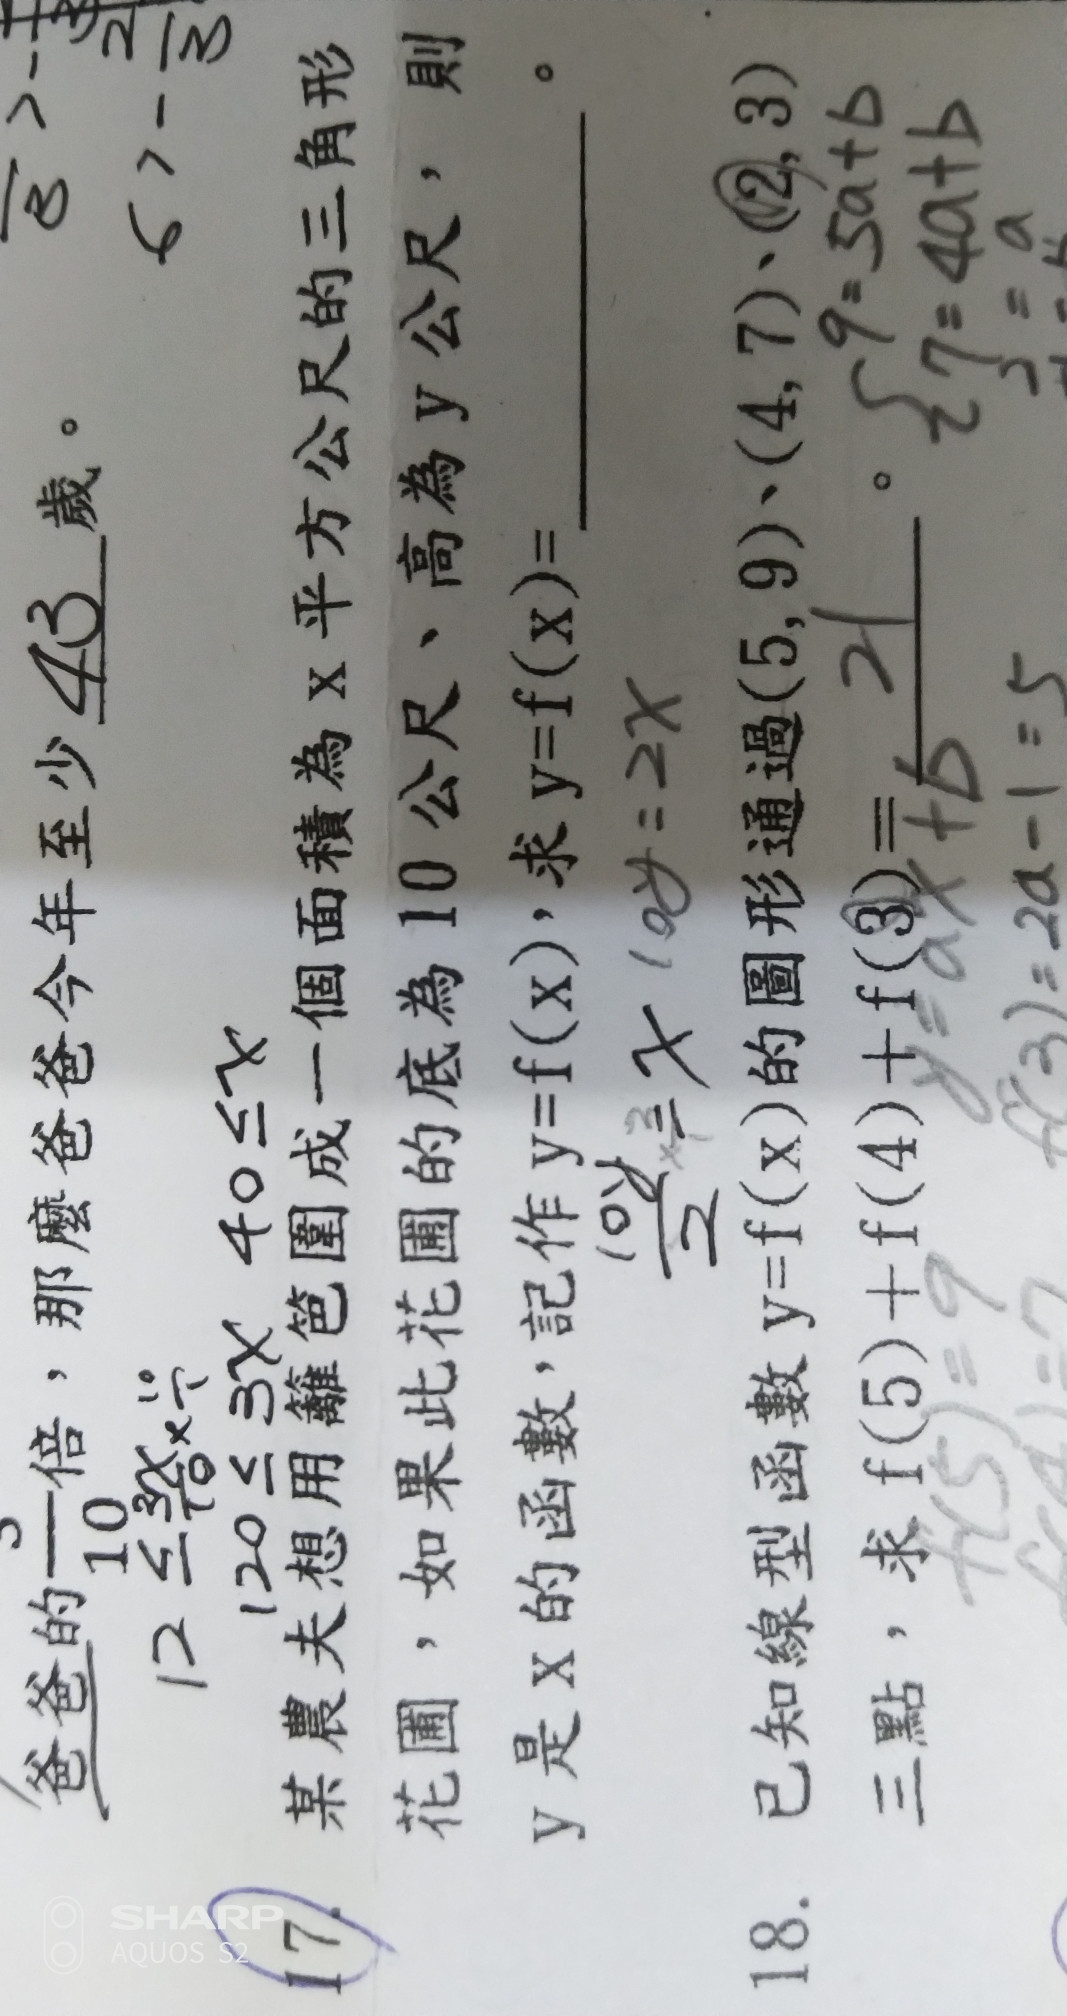 爸爸的3/10倍，那麼爸爸今年至少43歲。
12≤3x/10
120≤3x 40≤x
17. 某農夫想用籬笆圍成一個面積為 x 平方公尺的三角形
花圃，如果此花圃的底為 10 公尺、高為 y 公尺，則
y 是 x 的函數，記作 y=f(x)，求 y=f(x)=＿＿＿。
10y/2=x 10y=2x
18. 已知線型函數 y=f(x)的圖形通過(5,9)、(4,7)、(2,3)
三點，求 f(5)+f(4)+f(3)=21。
{9=5a+b
7=4a+b
f(5)=9 y=ax+b
f(4)=7 f(3)=2a-1=5